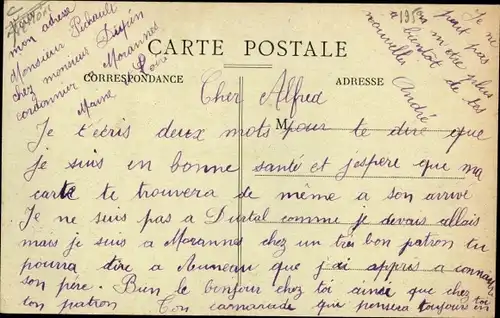 mon adresse
Monsieur Pichault
chez monsieur Dupin
cordonnier Morannes
Maine Loire
CARTE POSTALE
CORRESPONDANCE
ADRESSE
M
Cher Alfred
Je t'écris deux mots pour te dire que
je suis en bonne santé et j'espere que ma
carte te trouvera de même a son arrivé
Je ne suis pas a Durtal comme je devais allais
mais je suis a Morannes chez un très bon patron tu
pourra dire a Auneau que j'ai appris a connaitre
son père. Bien le bonjour chez toi ainsi que chez
ton patron Ton camarade que pensera toujours en toi
Je ne
peut pas
m'ecrire plus
a bientot de tes
nouvelles
André